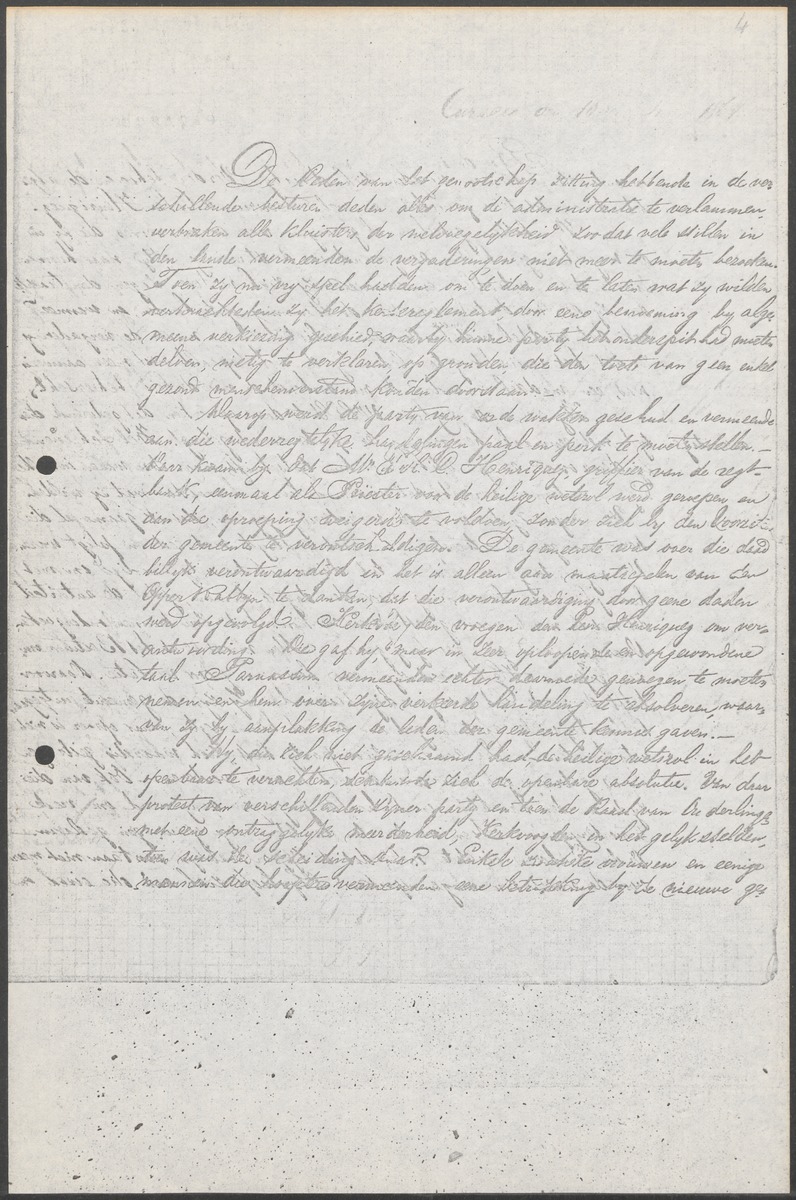 4
Curacao
De Leden van het genootschap zitting hebbende in de ver=
schillende besturen deden alles om de administratie te verlammen,
verbraken alle kluisters der welvoegelijkheid zoo dat vele stillen in
den lande vermeenden de vergaderingen niet meer te moeten bezoeken.
Toen zy nu vry spel hadden om te doen en te laten wat zy wilden
zy het kerkreglement door eene benoeming by alge=
meene verkiezing geschied, waarby hunne party het onderspit had moeten
delven, nietig te verklaren, op gronden die den toets van geen enkel
gezond menschenverstand konden doorstaan.
werd de party van orde wakker geschud en vermeende
aan die wederregtelyke paal en perk te moeten stellen. —
Daar kwam by dat Mr. Henriquez, griffier van de regt=
bank, eenmaal als Priester voor de heilige wetsrol werd geroepen en
aan die oproeping weigerde te voldoen, zonder zich by den Voorzit=
der gemeente te verontschuldigen. De gemeente was over die daad
billyk verontwaardigd en het is alleen aan maatregelen van den
Opper Rabbyn te danken, dat die verontwaardiging door geene daden
werd opgevolgd. Kerkvoogden vroegen den heer Henriquez om ver=
antwoording. Die gaf hy, maar in zeer oploopende en opgewondene
taal. Parnassim vermeenden echter daarmede genoegen te moeten
nemen en hem over zyne verkeerde handeling te absolveren, waar=
van zy by aanplakking de leden der gemeente kennis gaven. —
Hy, die zich niet geschaamd had, de heilige wetsrol in het
openbaar te verachten, schaamde zich de openbare absolutie. Van daar
protest van verschillenden zyner party en toen de Raad van Ouderlingen
met eene ontzaggelyke meerderheid, Kerkvoogden in het gelyk stelden,
toen was de scheiding daar. Enkele zwakke vrouwen en eenige
mannen die hoopten eene betrekking by de nieuwe ge=